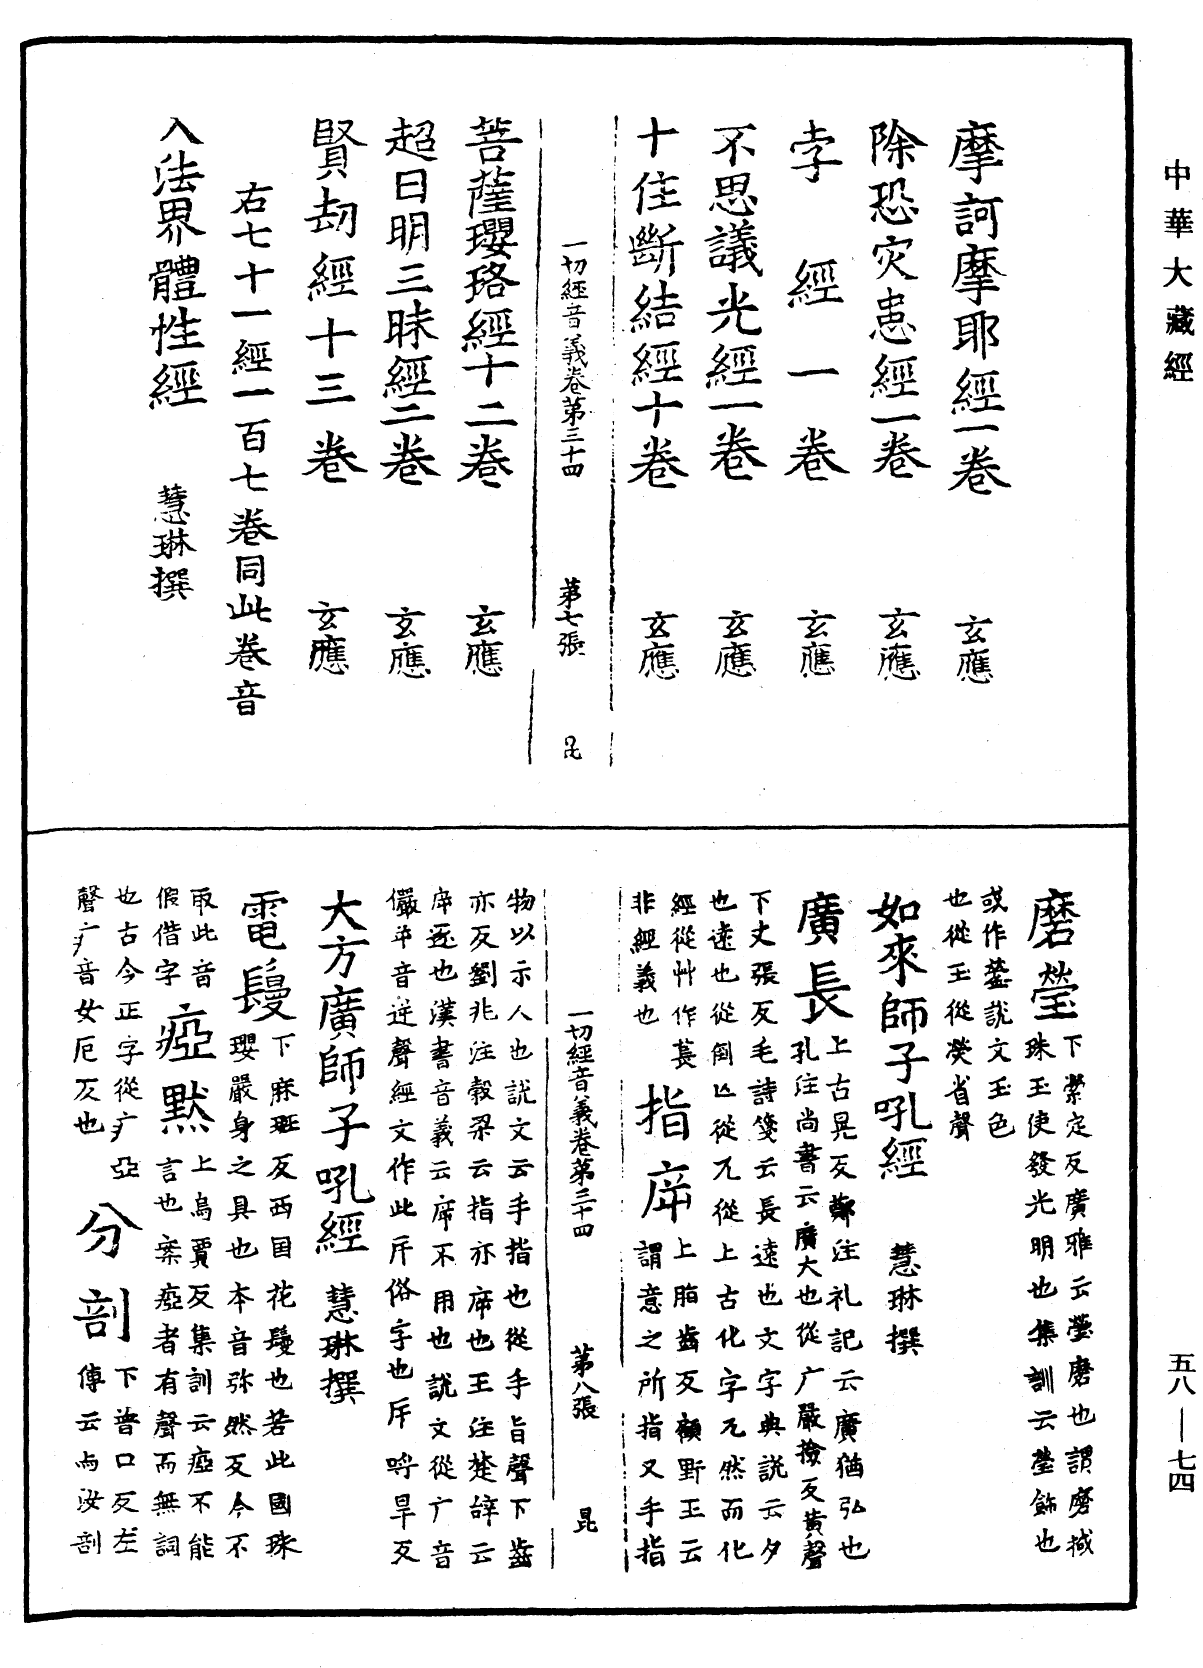 中華大藏經
摩訶摩耶經一卷　玄應
除恐灾患經一卷　玄應
孛經一卷　玄應
不思議光經一卷　玄應
十住斷結經十卷　玄應
一切經音義卷第三十四　第七張　昆
菩薩瓔珞經十二卷　玄應
超日明三昧經二卷　玄應
賢劫經十三卷　玄應
右七十一經一百七卷同此卷音
入法界體性經　慧琳撰
磨瑩下縈定反廣雅云瑩磨也謂磨拭
珠玉使發光明也集訓云瑩飾也
或作鎣說文玉色
也從玉從熒省聲
如來師子吼經　慧琳撰
廣長上古晃反鄭注礼記云廣猶弘也
孔注尚書云廣大也從广嚴撿反黃聲
下丈張反毛詩箋云長遠也文字典說云夕
也遠也從倒亾從兀從上古化字兀然而化
經從艸作萇
非經義也
指㡿上脂齒反顧野王云
謂意之所指又手指
物以示人也說文云手指也從手旨聲下齒
亦反劉兆注穀梁云指亦㡿也王注楚辝云
㡿逐也漢書音義云㡿不用也說文從广音
儼屰音逆聲經文作此斥俗字也斥呼旱反
一切經音義卷第三十四　第八張　昆
大方廣師子吼經　慧琳撰
電鬘下麻班反西国花鬘也若此國珠
瓔嚴身之具也本音弥然反今不
取此音
假借字
瘂默上烏賈反集訓云瘂不能
言也案瘂者有聲而無詞
也古今正字從疒亞
聲疒音女厄反也
分剖下普口反左
傳云与汝剖
五八—七四